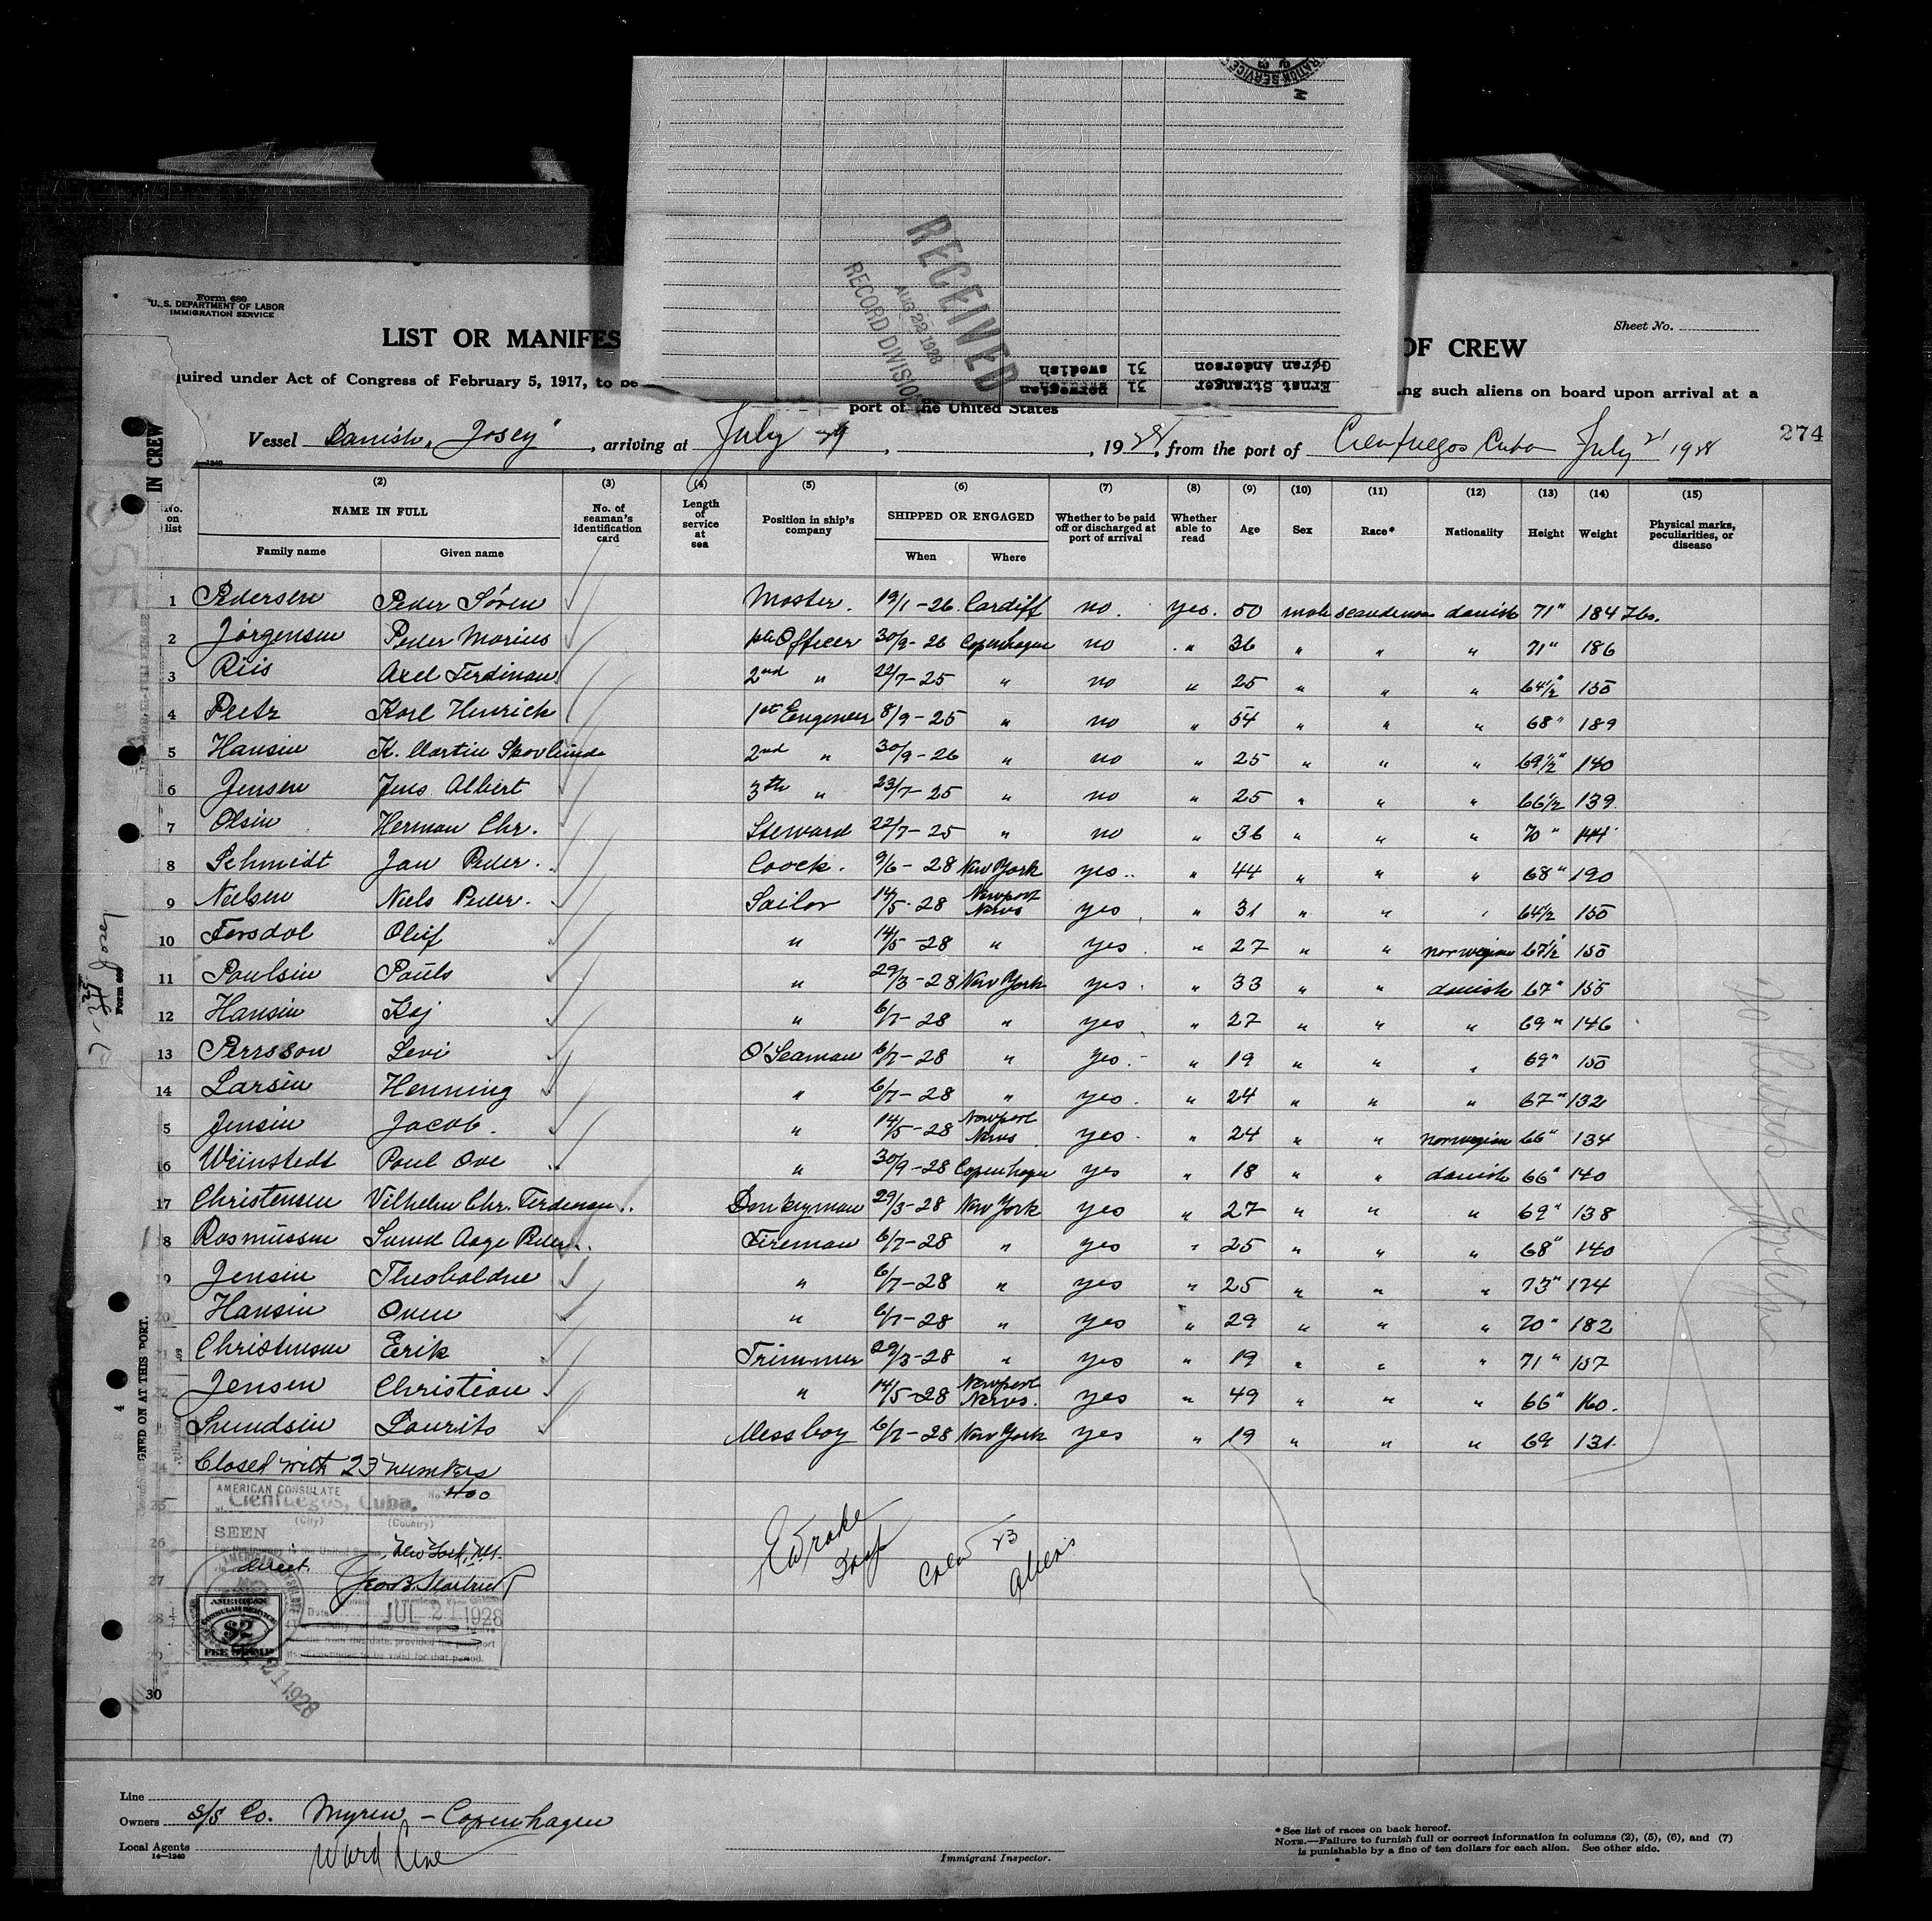 RATION SERVICE
RECEIVED
AUG 22 1928
RECORD DIVISION
Ernst Stranger 31 norwegian
Gøran Anderson 31 swedish
Form 680
U. S. DEPARTMENT OF LABOR
IMMIGRATION SERVICE
Sheet No.
LIST OR MANIFES OF CREW
quired under Act of Congress of February 5, 1917, to be ng such aliens on board upon arrival at a
port of the United States
Vessel Danish "Josey", arriving at July 29, 1928, from the port of Cienfuegos Cuba July 21 1928
274
(2) (3) (4) (5) (6) (7) (8) (9) (10) (11) (12) (13) (14) (15)
No. on list NAME IN FULL No. of seaman's identification card Length of service at sea Position in ship's company SHIPPED OR ENGAGED Whether to be paid off or discharged at port of arrival Whether able to read Age Sex Race* Nationality Height Weight Physical marks, peculiarities, or disease
Family name Given name When Where
1 Pedersen Peder Sören Master. 19/1-26. Cardiff no. yes. 50 male danish 71" 184 Lbs.
2 Jørgensen Peder Marius 1st Officer 30/9-26 Copenhagen no " 36 " " " 71" 186
3 Riis Axel Ferdinan 2nd " 22/7-25 " no " 25 " " " 64½" 150
4 Peetz Karl Hinrich 1st Engeneer 8/9-25 " no " 54 " " " 68" 189
5 Hansen K. Martin Skovlunde 2nd " 30/9-26 " no " 25 " " " 69½" 140
6 Jensen Jens Albert 3th " 23/7-25 " no " 25 " " " 66½ 139
7 Olsen Herman Chr. Steward 22/7-25 " no " 36 " " " 70" 144
8 Schmidt Jan Peder. Coock. 9/6-28 New York yes " 44 " " " 68" 190
9 Nielsen Niels Peder. Sailor 14/5-28 Newport News yes " 31 " " " 64½ 150
10 Oluf " 14/5-28 " yes " 27 " " norwegian 67½ 150
11 Poulsen Pauls " 29/3-28 New York yes " 33 " " danish 67" 155
12 Hansen Kaj " 6/7-28 " yes " 27 " " " 69" 146
13 Perrsson Levi O'Seaman 6/7-28 " yes " 19 " " " 69" 150
14 Larsen Henning " 6/7-28 " yes " 24 " " " 67" 132
5 Jensen Jacob. " 14/5-28 Newport News yes " 24 " " norwegian 66" 134
16 Weinstedt Poul Ove " 30/9-28 Copenhagen yes " 18 " " danish 66" 140
17 Christensen Vilhelm Chr. Ferdenan Donkeyman 29/3-28 New York yes " 27 " " " 69" 138
18 Rasmussen Svend Aage Peder Fireman 6/7-28 " yes " 25 " " " 68" 140
9 Jensen " 6/7-28 " yes " 25 " " " 73" 174
20 Hansen Oven " 6/7-28 " yes " 29 " " " 70" 182
21 Christensen Erik Trimmer 29/3-28 " yes " 19 " " " 71" 157
22 Jensen Christian " 14/5-28 Newport News. yes " 49 " " " 66" 160.
Laurits Messboy 6/7-28 New York yes " 19 " " " 69 131
24 Closed with 23 numbers
25 AMERICAN CONSULATE No. 400
at Cienfuegos, Cuba.
(City) (Country)
SEEN
26 New York, N.Y.
direct.
27
28 Date JUL 21 1928
AMERICAN CONSULAR SERVICE $2 FEE STAMP
29
30
21 1928
Crew 23 Aliens
IN CREW
Josey
Form 680
GNED ON AT THIS PORT.
Line
Owners S/S Co. Myren - Copenhagen
Local Agents Ward Line
14-1240
Immigrant Inspector.
*See list of races on back hereof.
NOTE.—Failure to furnish full or correct information in columns (2), (5), (6), and (7)
is punishable by a fine of ten dollars for each alien. See other side.